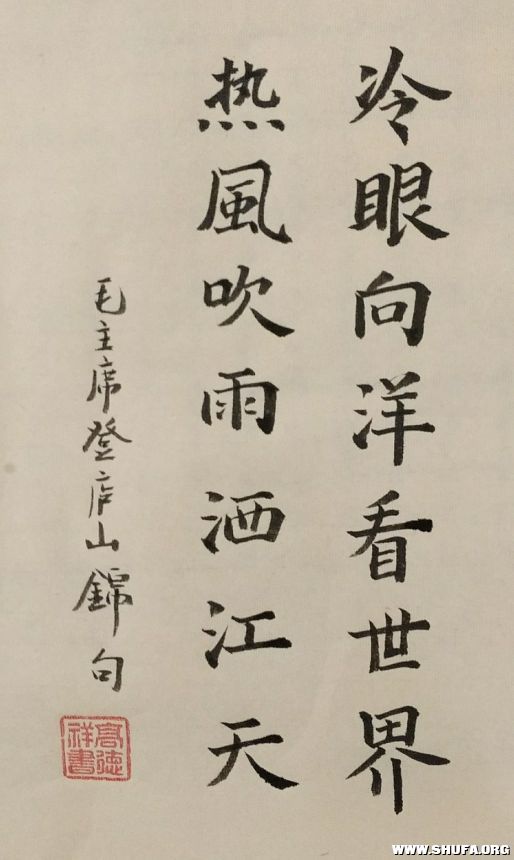 冷眼向洋看世界
热風吹雨洒江天
毛主席登庐山錦句
高德祥書
WWW.SHUFA.ORG